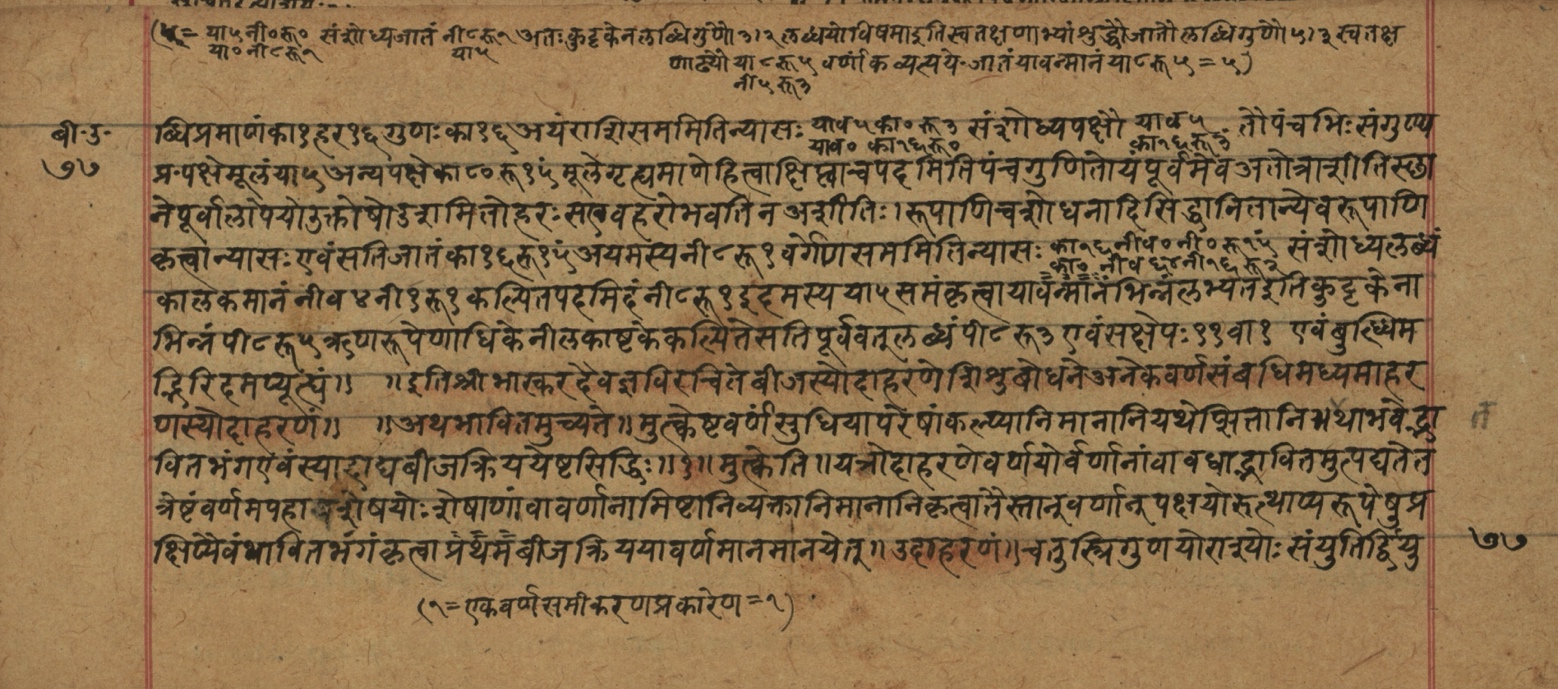 (५= या५ नी०रू० संशोध्यजातं नी८रू१ अतः कुट्टकेनलब्धिगुणौ३।२ लब्धयोविषमाइतिस्वतक्षणाभ्यांशुद्धौजातौलब्धिगुणौ५।३ स्वतक्ष
या०नी८रू१ या५ णाढ्यौ या८रू५ वर्णांकव्यत्यये-जातंयावन्मानंया८रू५=५)
नी५रू३
ब्धिप्रमाणंका१हर१६गुणःका१६अयंराशिसममितिन्यासः याव५का०रू३ संशोध्यपक्षौ याव५ तौपंचभिःसंगुण्य
बी·उ· याव० का१६रू० का१६रू३
७७ प्र·पक्षेमूलंया५अन्यपक्षेका८०रू१५ं मूलेगृह्यमाणेहित्वाक्षिप्त्वाचपदमितिपंचगुणितोयंपूर्वमेवअतोत्राशीतिस्छा
नेपूर्वालापयोउक्तोषोडशमितोहरःसएवहरोभवतिनअशीतिः।रूपाणिचशोधनादिसिद्धानितान्येवरूपाणि
कृत्वान्यासःएवंसतिजातंका१६रू१५ं अयमस्यनी८रू१वर्गेणसममितिन्यासः का१६नीव०नी०रू१५ं संशोध्यलब्धं
का० नीव६४नी१६रू१
कालकमानंनीव४नी१रू१कल्पितपदमिदंनी८रू१इदमस्यया५समंकृत्वायावन्मानंभिन्नंलभ्यतइतिकुट्टकेना
भिन्नंपी८रू५ऋणरूपेणाधिकेनीलकाष्टकेकल्पितेसतिपूर्ववत्लब्धंपी८रू३एवंसक्षेपः११वा१ एवंबुत्धिम
द्भिरिदमप्यूह्यं॥ ॥इतिश्रीभास्करदैवज्ञविरचितेबीजस्यौदाहरणेशिशुबोधनेअनेकवर्णसंबधिमध्यमाहर
णस्यौदाहरणं॥ ॥अथभावितमुच्यते॥मुत्क्केष्टवर्णंसुधियापरेषांकल्प्यानिमानानियथेप्सितानितथाभवेद्भा
वितभंगएवंस्यादाद्यबीजक्रिययेष्टसिद्धिः॥१॥मुत्क्केति॥यत्रोदाहरणेवर्णयोर्वर्णानांवावधाद्भावितमुत्पद्यतेत
त्रेष्टंवर्णमपहायशेषयोःशेषाणांवावर्णानामिष्टानिव्यक्तानिमानानिकृत्वातैस्तान्वर्णान्पक्षयोरुत्थाप्यरूपेषुप्र
क्षिप्यैवंभावितभंगंकृत्वाप्रथमबीजक्रिययावर्णमानमानयेत्॥उदाहरणं॥चतुस्त्रिगुणयोराश्योःसंयुतिर्द्वियु
७७
(१=एकवर्णसमीकरणप्रकारेण=१)